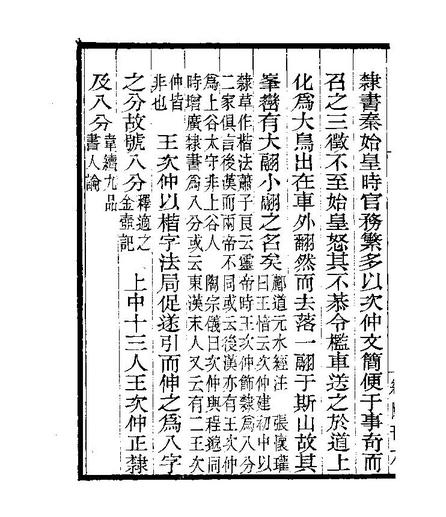 隸書秦始皇時官務繁多以次仲文簡便于事奇而
召之三徵不至始皇怒其不恭令檻車送之於道上
化爲大鳥出在車外翻然而去落一翮于斯山故其
峯巒有大翮小翮之名矣
酈道元水經注　張懷瓘
曰王愔云次仲建初中以
隸草作楷法蕭子良云靈帝時王次仲飾隸爲八分
二家俱言後漢而兩帝不同或云後漢亦有王次仲
爲上谷太守非上谷人　陶宗儀曰次仲與程邈同
時增廣隸書爲八分或云東漢末人又云有二王次
仲皆
非也
王次仲以楷字法局促遂引而伸之爲八字
之分故號八分
釋適之
金壺記
上中十三人王次仲正隸
及八分
韋續九品
書人論